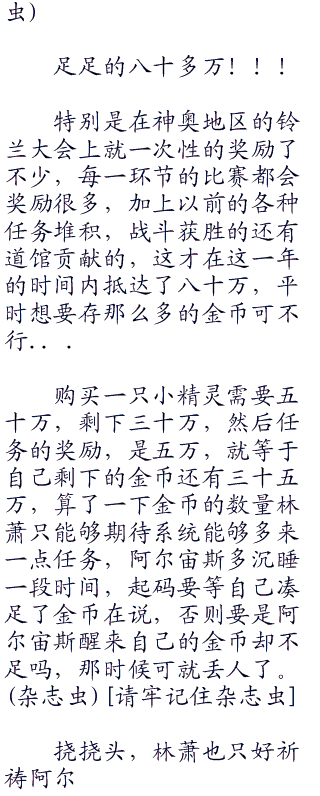 虫)
足足的八十多万！！！
特别是在神奥地区的铃
兰大会上就一次性的奖励了
不少，每一环节的比赛都会
奖励很多，加上以前的各种
任务堆积，战斗获胜的还有
道馆贡献的，这才在这一年
的时间内抵达了八十万，平
时想要存那么多的金币可不
行．．．
购买一只小精灵需要五
十万，剩下三十万，然后任
务的奖励，是五万，就等于
自己剩下的金币还有三十五
万，算了一下金币的数量林
萧只能够期待系统能够多来
一点任务，阿尔宙斯多沉睡
一段时间，起码要等自己凑
足了金币在说，否则要是阿
尔宙斯醒来自己的金币却不
足吗，那时候可就丢人了。
(杂志虫)[请牢记住杂志虫]
挠挠头，林萧也只好祈
祷阿尔